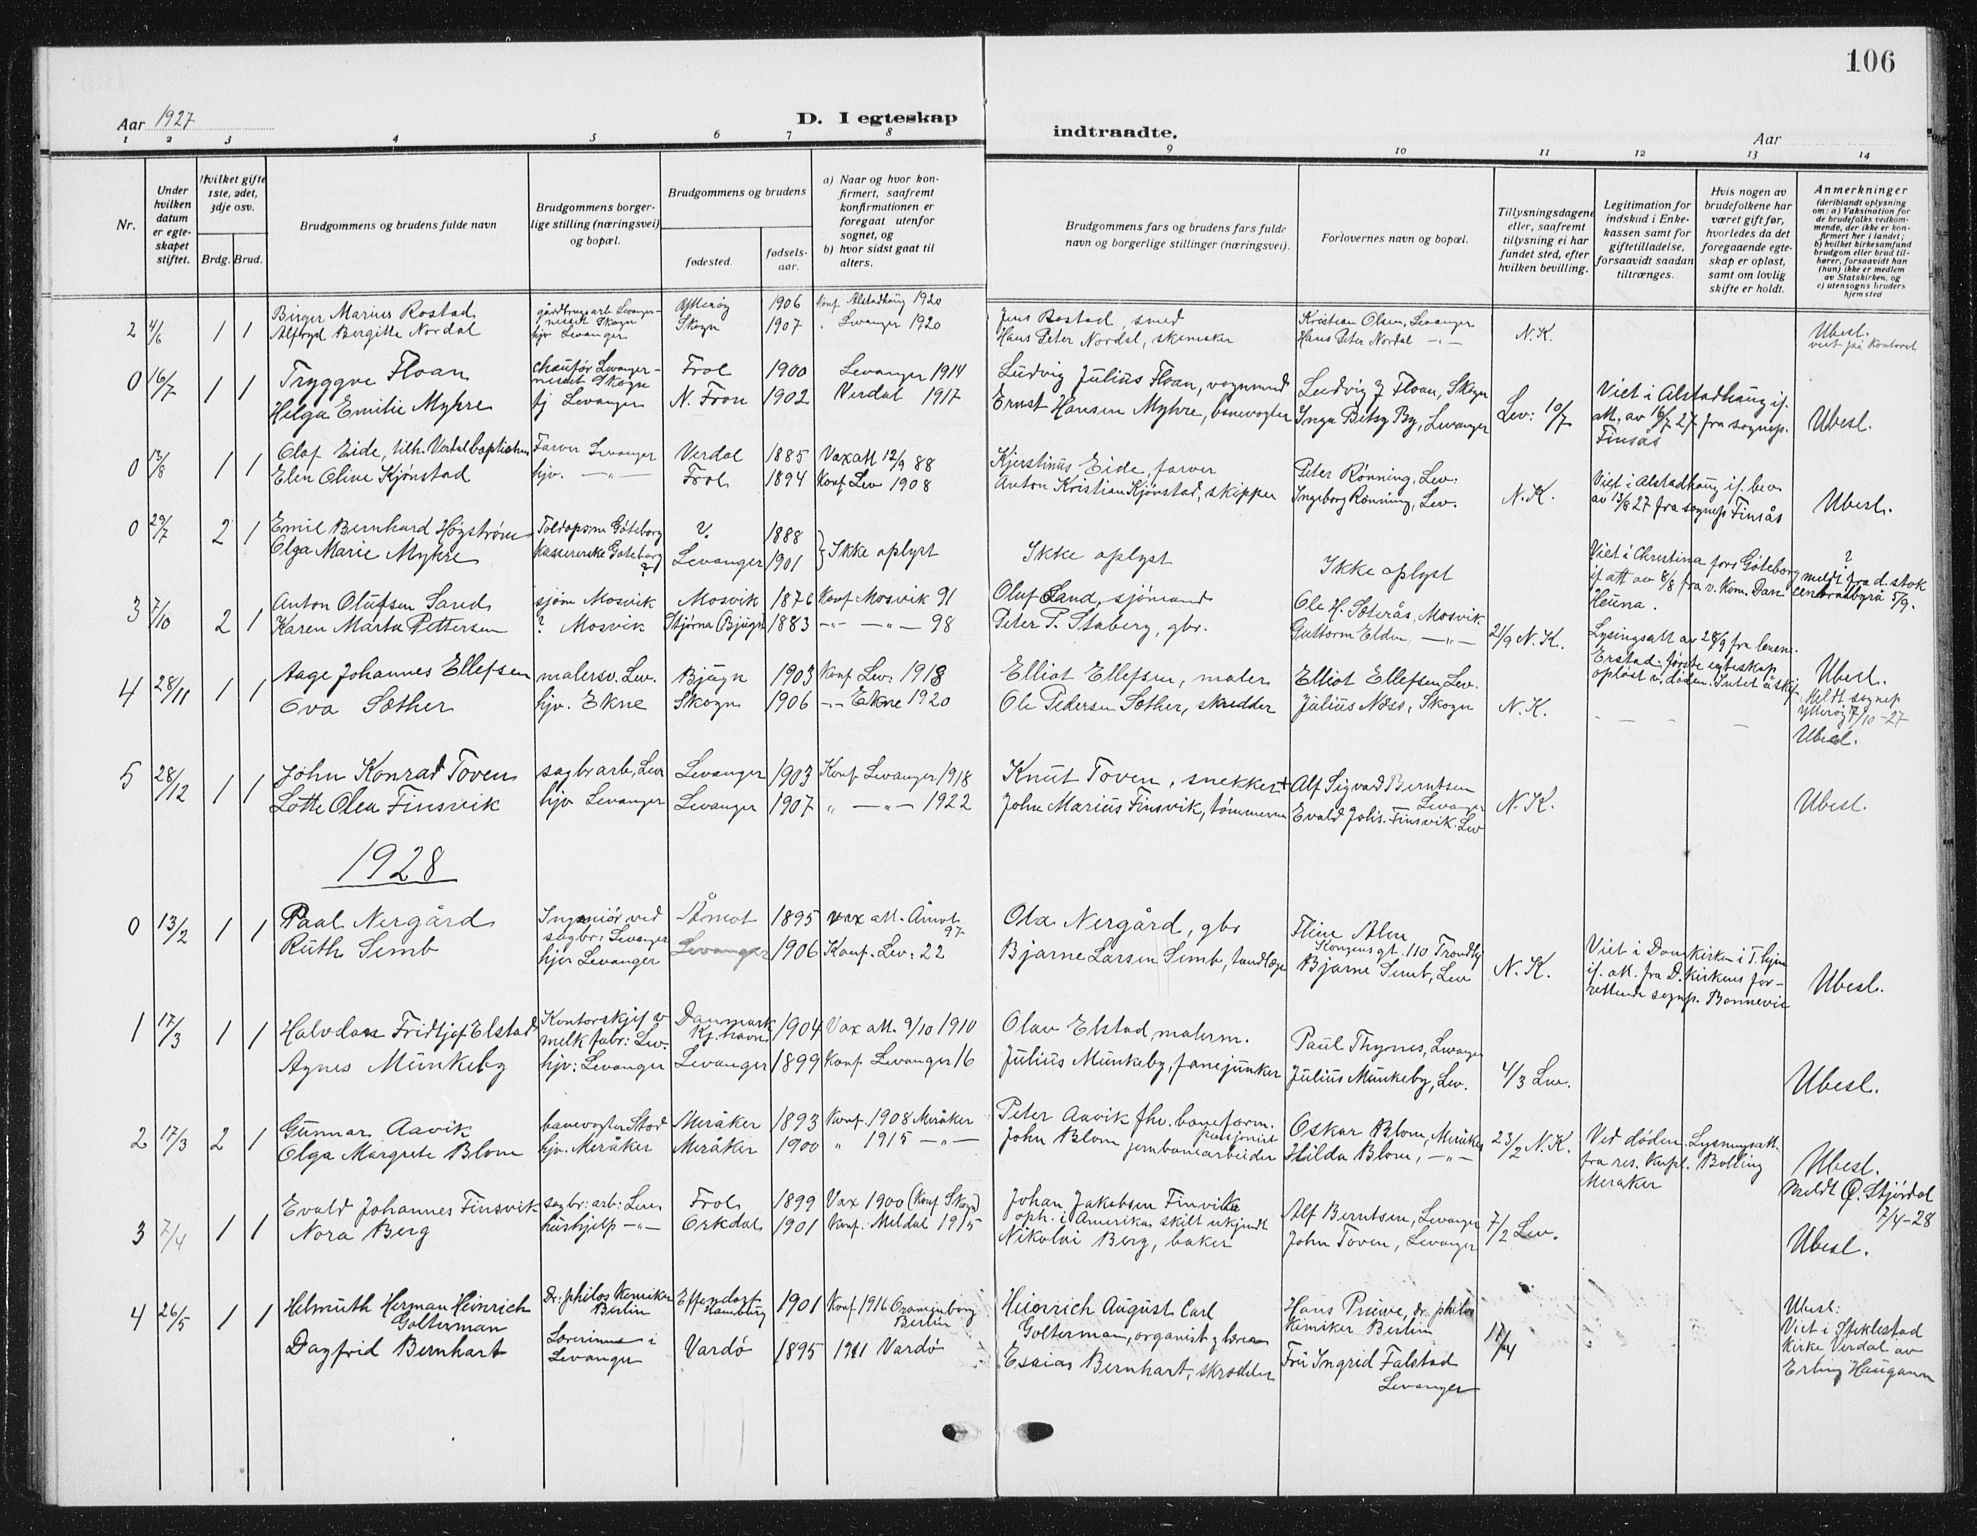 106
Aar 1927
D. I egteskap
indtraadte.
Aar
1 2 3 4 5 6 7 8 9 10 11 12 13 14
Nr.
Under hvilken datum er egteskapet stiftet.
Hvilket gifte 1ste, 2det, 3dje osv.
Brdg. Brud.
Brudgommens og brudens fulde navn
Brudgommens borgerlige stilling (næringsvei) og bopæl.
Brudgommens og brudens
fødested.
fødselsaar.
a) Naar og hvor konfirmert, saafremt konfirmationen er foregaat utenfor sognet, og
b) hvor sidst gaat til alters.
Brudgommens fars og brudens fars fulde navn og borgerlige stillinger (næringsvei).
Forlovernes navn og bopæl.
Tillysningsdagene eller, saafremt tillysning ei har fundet sted, efter hvilken bevilling.
Legitimation for indskud i Enkekassen samt for giftetilladelse, forsaavidt saadan tiltrænges.
Hvis nogen av brudefolkene har været gift før, hvorledes da det foregaaende egteskap er opløst, samt om lovlig skifte er holdt.
Anmerkninger (deriblandt oplysning om: a) Vaksination for de brudefolks vedkommende, der ikke er konfirmert her i landet; b) hvilket kirkesamfund brudgom eller brud tilhører, forsaavidt han (hun) ikke er medlem av Statskirken, og c) utensogns bruders hjemsted
2 4/6 1 1 Birger Marius Rostad gårdbrugsarb Levangernesset Skogn Ytterøy 1906 Konf Alstadhaug 1920 Jens Rostad, smed Kristian Olsen, Levanger N.K. Ubesl. viet på kontoret
Alfhyd Bergitte Nordal hjv Levanger Skogn 1907 Levanger 1920 Hans Peter Nordal, skomaker Hans Peter Nordal
0 16/7 1 1 Tryggve Floan chaufør Levangernesset Skogn Frol 1900 Levanger 1914 Ludvig Julius Floan, vognmand Ludvig J Floan, Skogn Lev: 10/7 Viet i Alstadhaug if. att. av 16/7 27 fra sognep. Finsås Ubesl.
Helga Emilie Myhre hj Levanger N. Fron 1902 Verdal 1917 Ernst Hansen Myhre, banevogter Inga Betsy By, Levanger
0 12/8 1 1 Olaf Eide, tilh. Verdal baptistmen Farver Levanger Verdal 1885 Vax att 12/9 88 Kjerstinus Eide, farver Peter Rønning, Lev. N.K. Viet i Alstadhaug if. bev. av 13/8 27 fra sognep Finsås Ubesl.
Elen Oline Kjønstad hjv. Frol 1894 Konf Lev 1908 Anton Kristian Kjønstad, skipper Ingeborg Rønning, Lev.
0 29/7 2 1 Emil Bernhard Högström Toldopsm Göteborg ?. 1888 Ikke oplyst Ikke oplyst Ikke oplyst Viet i Christina förs Göteborg if att av 8/8 fra v. Kom. Dan Heuna. ? meldt fra d. stok centralbyrå 5/9.
Olga Marie Myhre kassererske Göteborg ? Levanger 1901
3 7/10 2 1 Anton Olufsen Sand sjøm Mosvik Mosvik 1876 Konf Mosvik 91 Oluf Sand, sjömand Ole H. Sæterås, Mosvik 21/9 N.K. Lysingsatt av 28/9 fra lensm. Erstad. første egteskap opløst v. døden. Intet å skif. Ubesl. Meldt sognep Ytterøy 7/10-27
Karen Marta Pettersen ? Mosvik Stjørna Bjugn 1883 98 Peter P. Staberg, gbr. Guttorm Elden
4 28/11 1 1 Aage Johannes Ellefsen malersv. Lev. Bjugn 1903 Konf Lev. 1918 Elliot Ellefsen, maler Elliot Ellefsen Lev. N.K. Ubesl.
Eva Sæther hjv. Ekne Skogn 1906 Ekne 1920 Ole Pedersen Sæther, skredder Julius Næss, Skogn
5 28/12 1 1 John Konrad Toven sagbr arb, Lev Levanger 1903 Konf Levanger 1918 Knut Toven, snekker + Alf Sigvad Berntsen Levanger N.K. Ubesl.
Lotte Olea Finsvik hjv Levanger Levanger 1907 1922 John Marius Finsvik, tömmerm Evald Johs. Finsvik. Lev
1928
0 13/2 1 1 Paal Nergård Ingeniør ved sagbr: Levanger Åmot 1895 vax att. Åmot 97 Ola Nergård, gbr Fline Alm Kongensgt. 110 Trondhj N.K. Viet i Domkirken i T.hjem if. att. fra D.kirkens forrettende sognep. Bonnevie Ubesl.
Ruth Semb hjv Levanger Levanger 1906 Konf. Lev. 22 Bjarne Larsen Semb, tandlæge Bjarne Semb, Lev
1 17/3 1 1 Halvdan Fridtjof Elstad Kontorskjef v melkfabr: Lev. Danmark Kj.havn 1904 Vax att 9/10 1910 Olav Elstad, malerm. Paul Thynes, Levanger 4/3 Lev. Ubesl.
Agnes Munkeby hjv: Levanger Levanger 1899 Konf Levanger 16 Julius Munkeby, fanejunker Julius Munkeby, Lev.
2 17/3 2 1 Gunnar Aavik banevogter Stod Meråker 1893 Konf. 1908 Meråker Peter Aavik fhv. baneform. pensjonist Oskar Blom, Meråker 23/2 N.K. Ved døden. Lysningsatt. fra res. kapl. Bolling Meraker Ubesl. Meldt Ø. Stjørdal 7/4-28
Olga Margrete Blom hjv. Meråker Meråker 1900 1915 John Blom jernbanearbeider Hilda Blom,
3 7/4 1 1 Evald Johannes Finsvik sagbr: arb: Lev Frol 1899 Vax 1900 (Konf Skogn) Johan Jakobsen Finsvik oph. i Amerika skilt ukjendt Alf Berntsen, Levanger 7/2 Lev. Ubesl.
Nora Berg hushjelp Orkdal 1901 Konf. Meldal 1915 Nikolai Berg, baker John Toven, Levanger
4 26/5 1 1 Helmuth Herman Heinrich Golterman Dr: philos kemiker Berlin Effendorf Hamburg 1901 Konf 1916 Oranienborg Berlin Heinrich August Carl Golterman, organist & lærer Hans Pruwe, dr. philos kemiker Berlin 17/4 Ubesl: Viet i Stiklestad Kirke Verdal av Erling Haugann
Dagfrid Bernhart Lærerinne i Levanger Vardø 1895 1911 Vardø Esaias Bernhart, skrædder Fru Ingrid Falstad Levanger